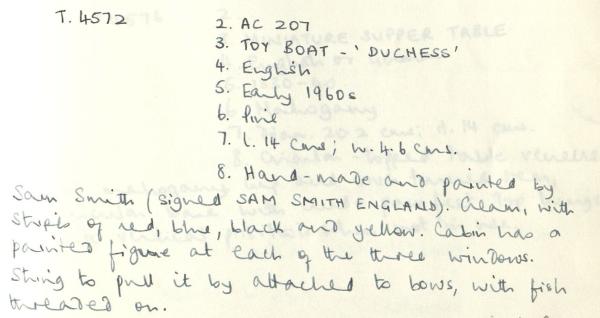 T. 4572
2. AC 207
3. TOY BOAT - 'DUCHESS'
4. English
5. Early 1960s
6. Pine
7. l. 14 cms; w. 4.6 cms.
8. Hand-made and painted by
Sam Smith (signed SAM SMITH ENGLAND). Cream, with
stripes of red, blue, black and yellow. Cabin has a
painted figure at each of the three windows.
String to pull it by attached to bows, with fish
threaded on.